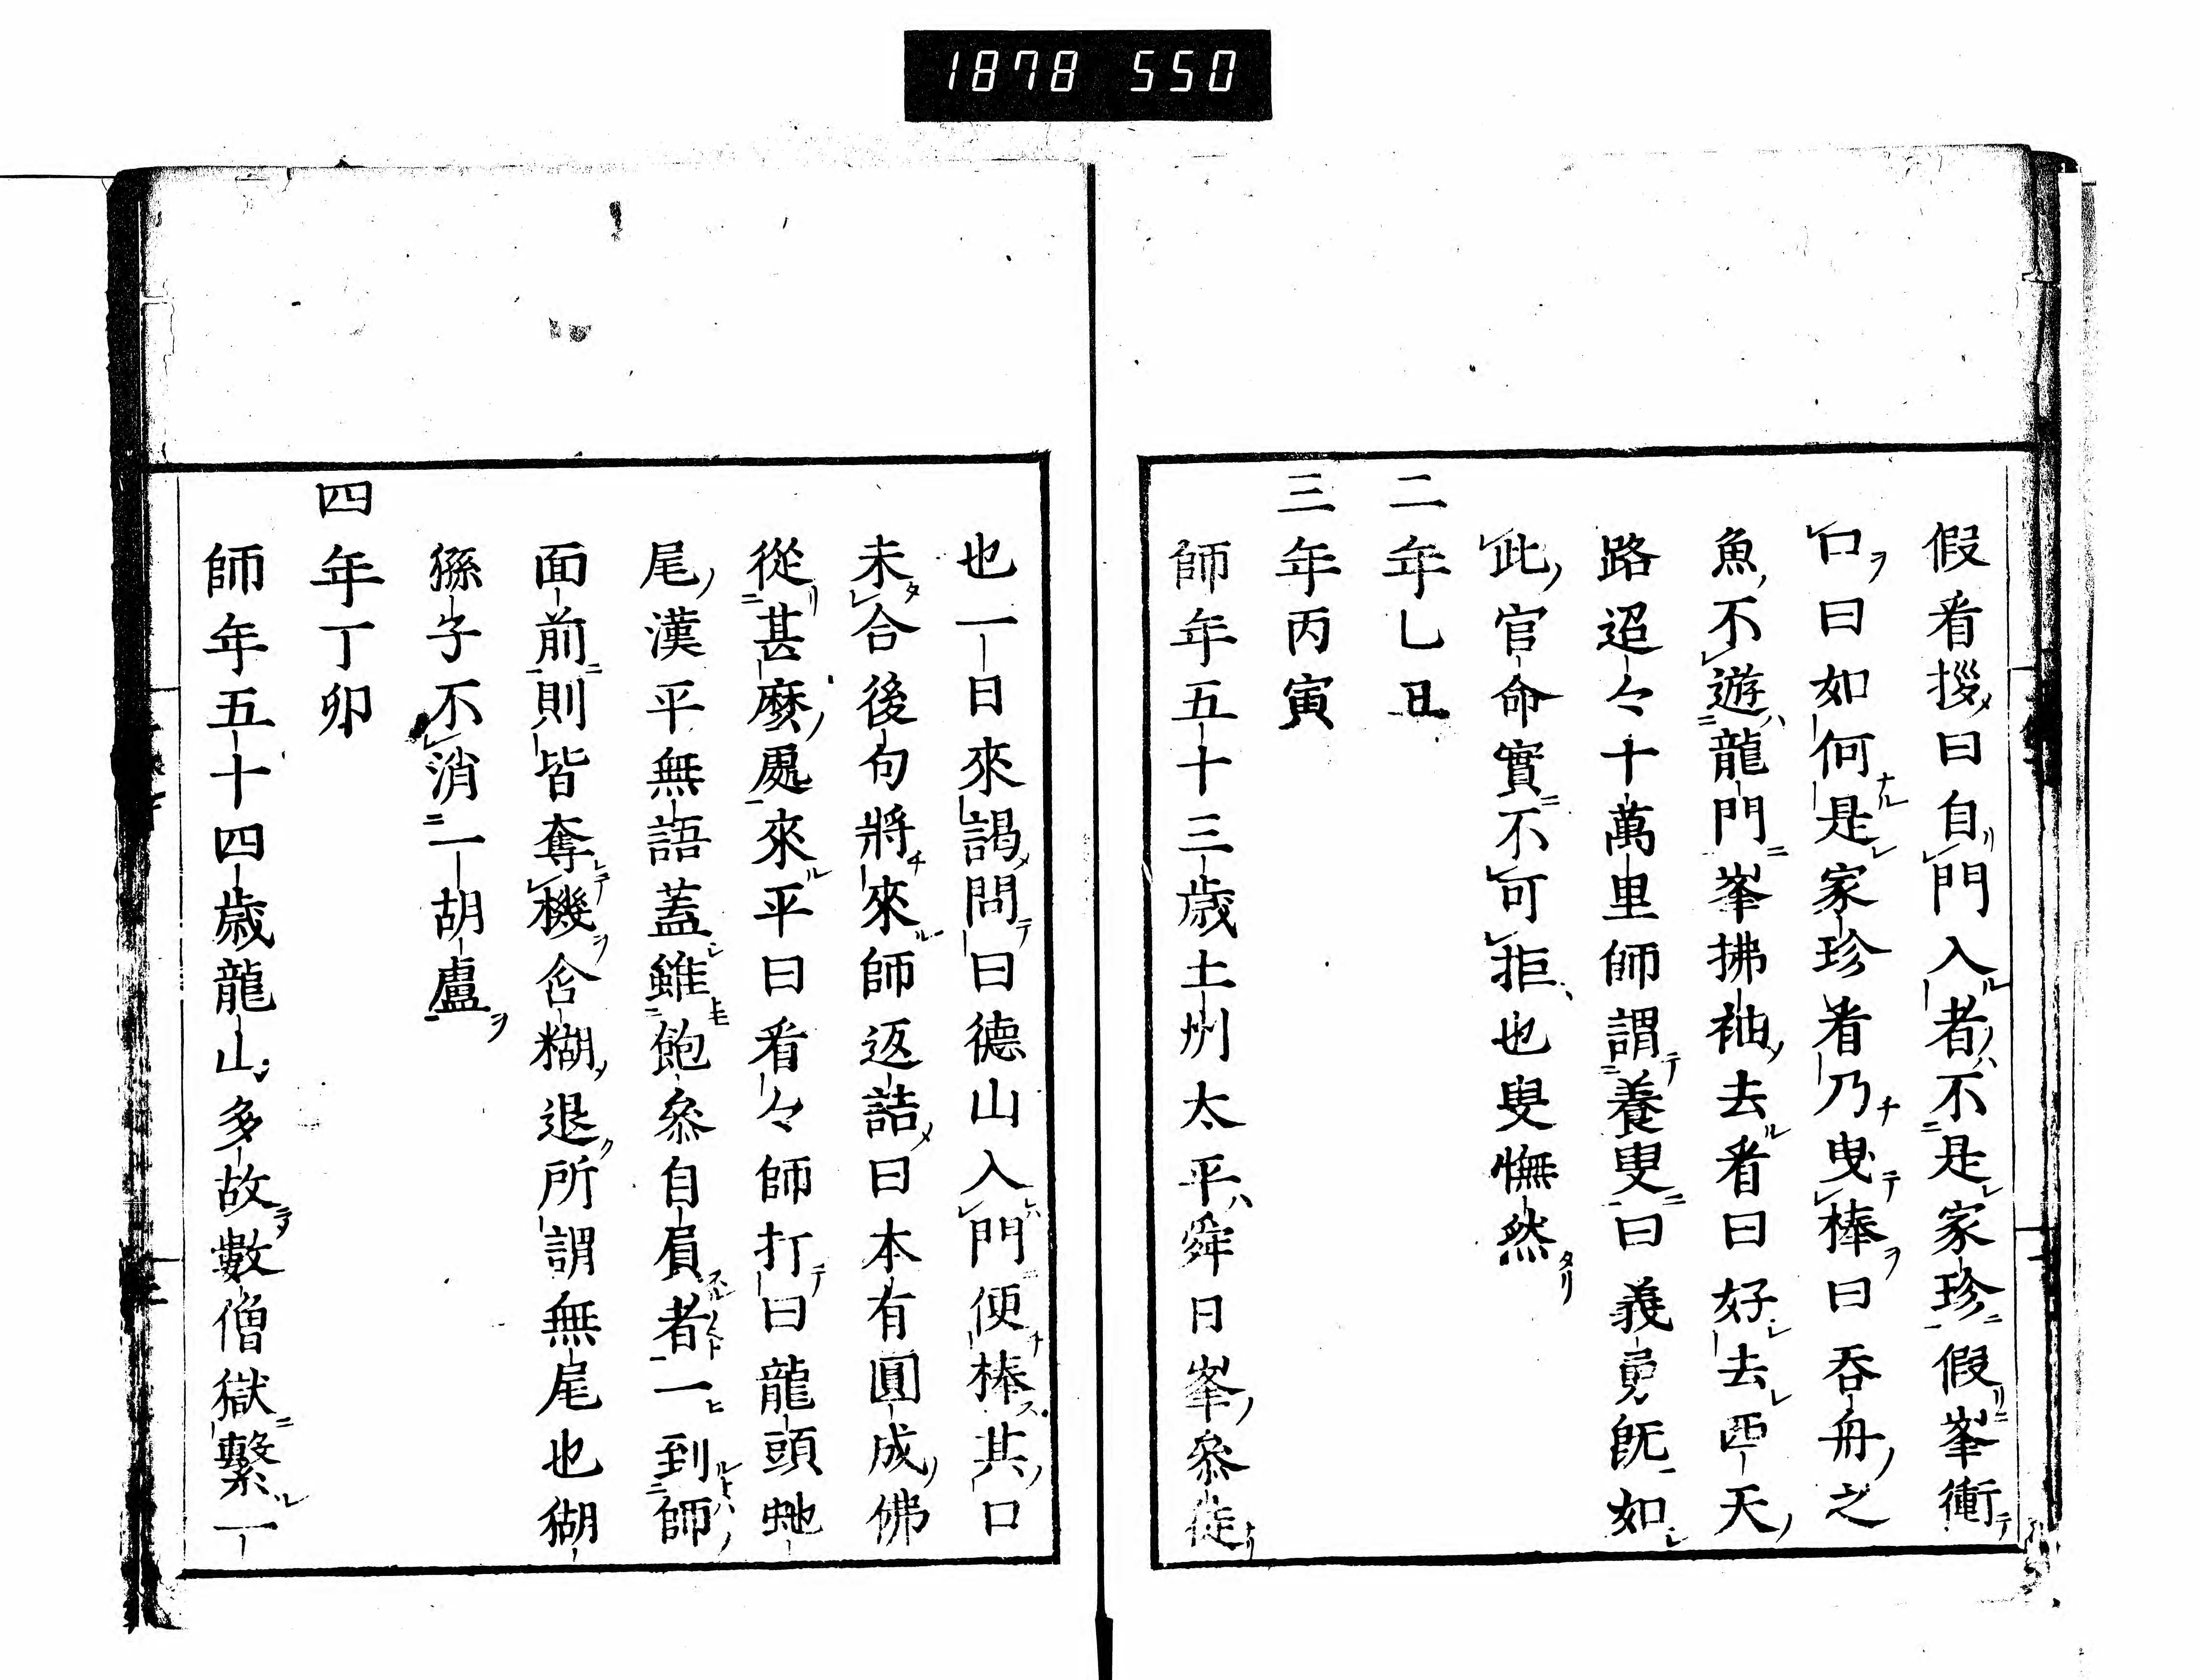 1878 550
假看拶曰自門入者不是家珍假峯衝
口曰如何是家珍看乃曳棒曰吞舟之
魚不遊龍門峯拂袖去看曰好去西天
路迢々十萬里師謂養叟曰義勇既如
此官命實不可拒也叟憮然
二年乙丑
三年丙寅
師年五十三歲土州太平舜日峯參徒
也一日來謁問曰德山入門便棒其口
未合後句將來師返詰曰本有圓成佛
從甚麼處來平曰看々師打曰龍頭虵
尾漢平無語蓋雖飽參自屓者一到師
面前則皆奪機含糊退所謂無尾也猢
猻子不消一胡盧
四年丁卯
師年五十四歲龍山多故數僧獄繫一